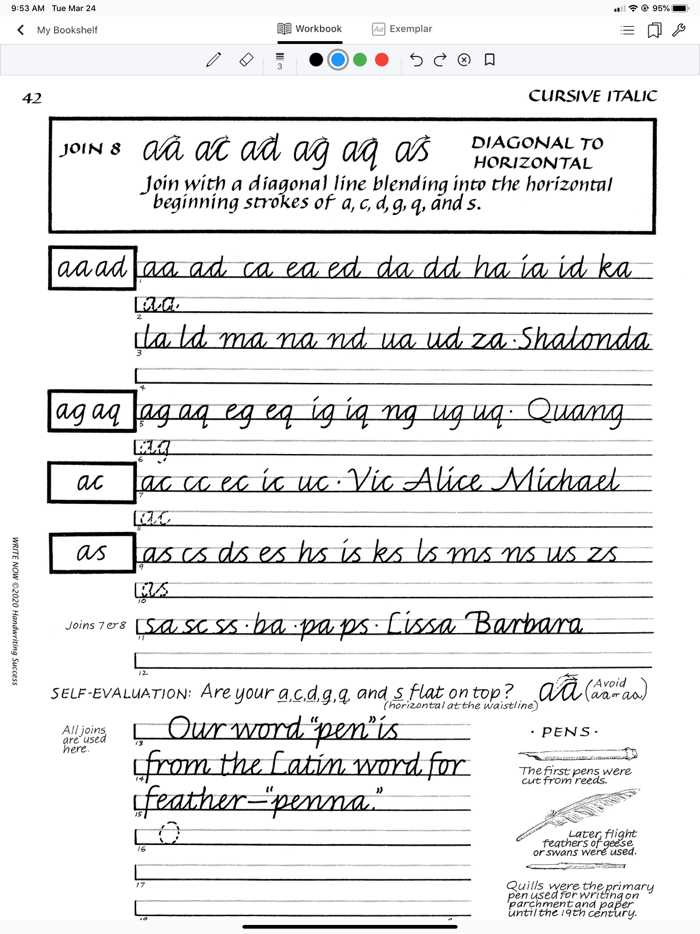 9:53 AM Tue Mar 24 95%
My Bookshelf Workbook Aa Exemplar
3
42 CURSIVE ITALIC
JOIN 8 aa ac ad ag aq as DIAGONAL TO
HORIZONTAL
Join with a diagonal line blending into the horizontal
beginning strokes of a, c, d, g, q, and s.
aa ad aa ad ca ea ed da dd ha ia id ka
1
aa
2
la ld ma na nd ua ud za · Shalonda
3
4
ag aq ag aq eg eq ig iq ng ug uq · Quang
5
ag
6
ac ac cc ec ic uc · Vic Alice Michael
7
ac
8
as as cs ds es hs is ks ls ms ns us zs
9
as
10
Joins 7 & 8 sa sc ss · ba · pa ps · Lissa Barbara
11
12
WRITE NOW ©2020 Handwriting Success
SELF-EVALUATION: Are your a, c, d, g, q, and s flat on top? aa (Avoid
(horizontal at the waistline) aa or aa)
All joins
are used
here.
Our word "pen" is
13
from the Latin word for
14
feather—"penna."
15
O
16
17
· PENS ·
The first pens were
cut from reeds.
Later, flight
feathers of geese
or swans were used.
Quills were the primary
pen used for writing on
parchment and paper
until the 19th century.